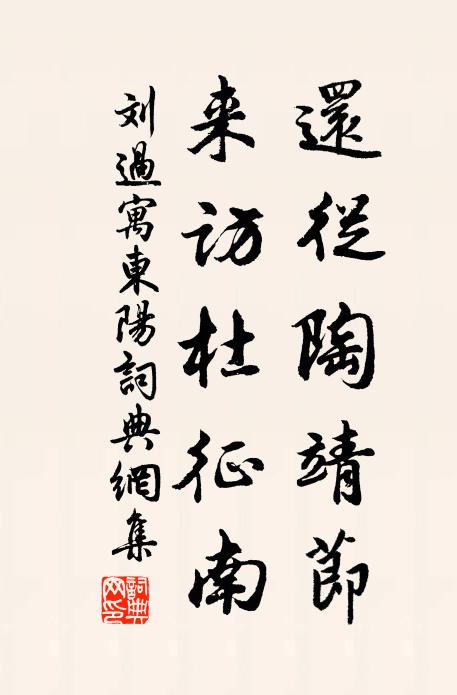 還從陶靖節
来訪杜征南
刘過寓東陽詞典網集
詞典网印